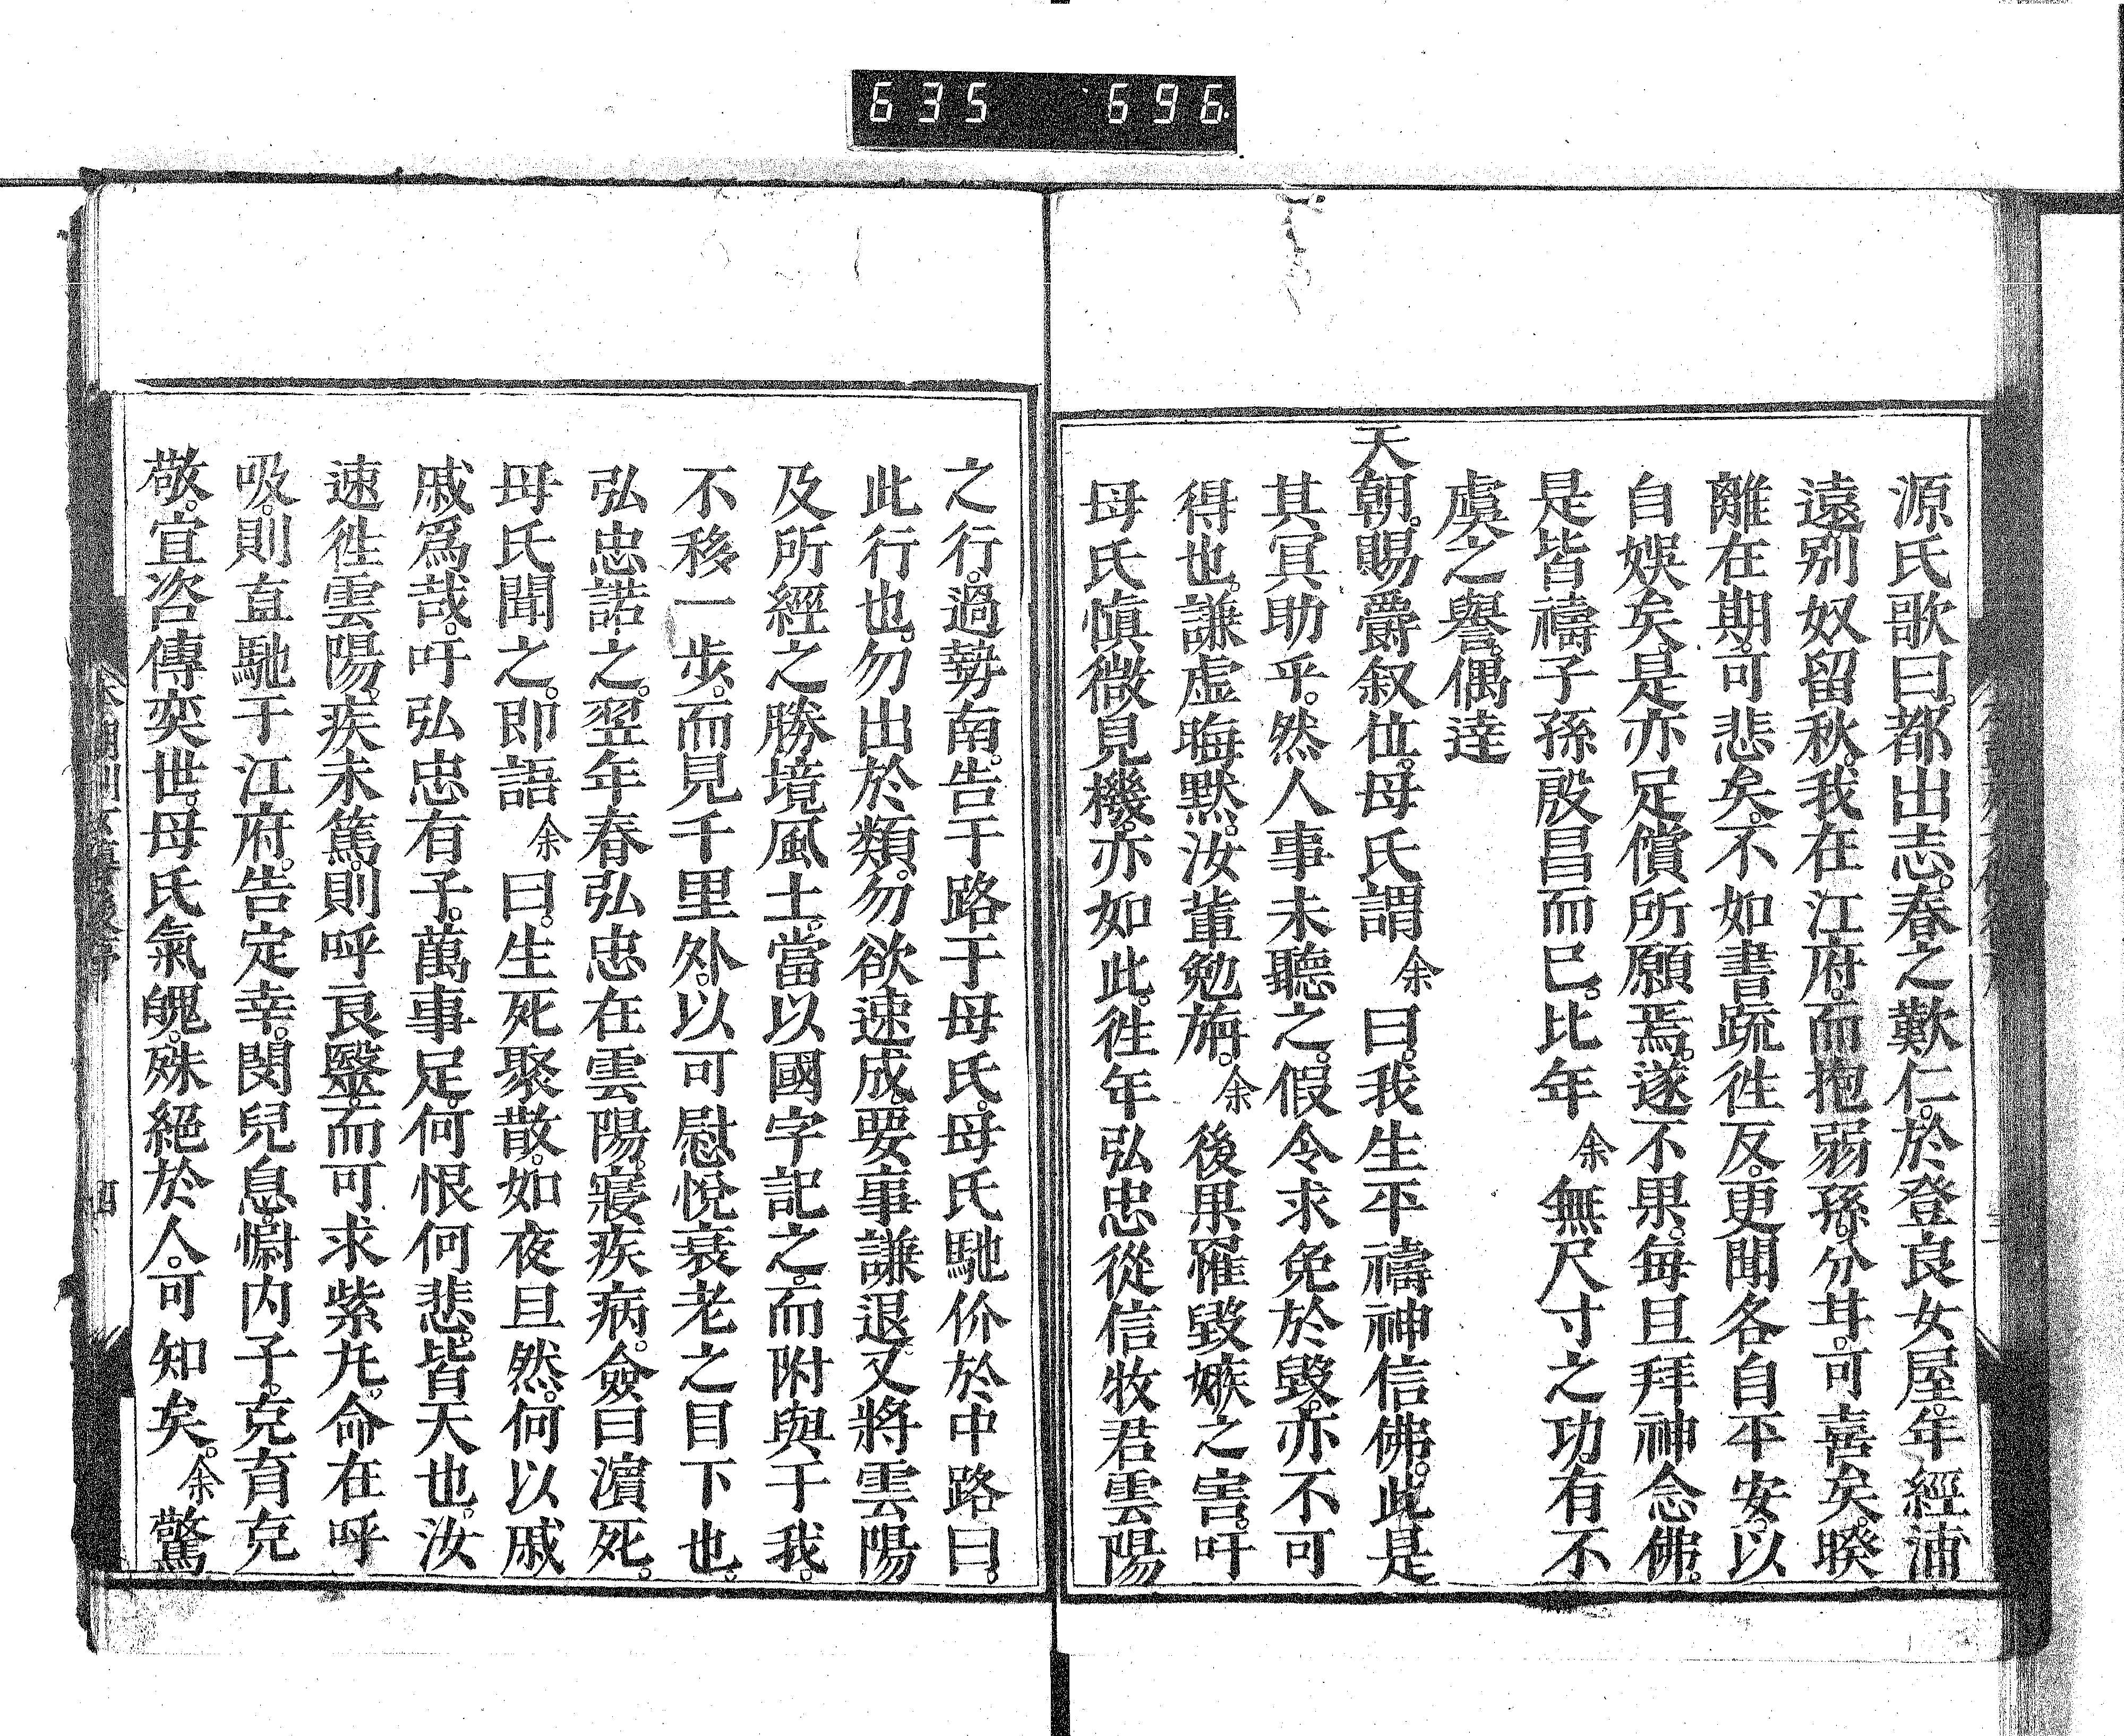 635 696
源氏歌曰。都出志。春之歎仁。於登良女屋。年經浦
遠。别奴留秋。我在江府。而抱弱孫。分甘。可喜矣。暌
離在期。可悲矣。不如書疏徃反。更聞各自平安。以
自娯矣。是亦足償所願焉。遂不果。毎旦拜神念佛。
是皆禱子孫殷昌而已。比年余無尺寸之功有不
虞之譽。偶達
天朝。賜爵叙位。母氏謂余曰。我生平禱神信佛。此是
其冥助乎。然人事未聽之。假令求免於毀。亦不可
得也。謙虚晦默。汝軰勉旃。余後果罹毀嫉之害。吁
母氏愼微見機。亦如此。徃年弘忠從信牧君雲陽
之行。過勢南。告于路于母氏。母氏馳价於中路曰。
此行也。勿出於類。勿欲速成。要事謙退。又將雲陽
及所經之勝境風土。當以國字記之。而附與于我。
不移一歩。而見千里外。以可慰悅衰老之目下也。
弘忠諾之。翌年春弘忠在雲陽。寢疾病。僉曰濵死。
母氏聞之。即語余曰。生死聚散。如夜旦然。何以戚
戚爲哉。吁弘忠有子。萬事足。何恨何悲。皆天也。汝
速徃雲陽。疾未篤。則呼良醫。而可求紫丸。命在呼
吸。則直馳于江府。告定幸。閔兒息。慰内子。克育克
敬。宜咨傳奕世。母氏氣䰟。殊絕於人。可知矣。余驚